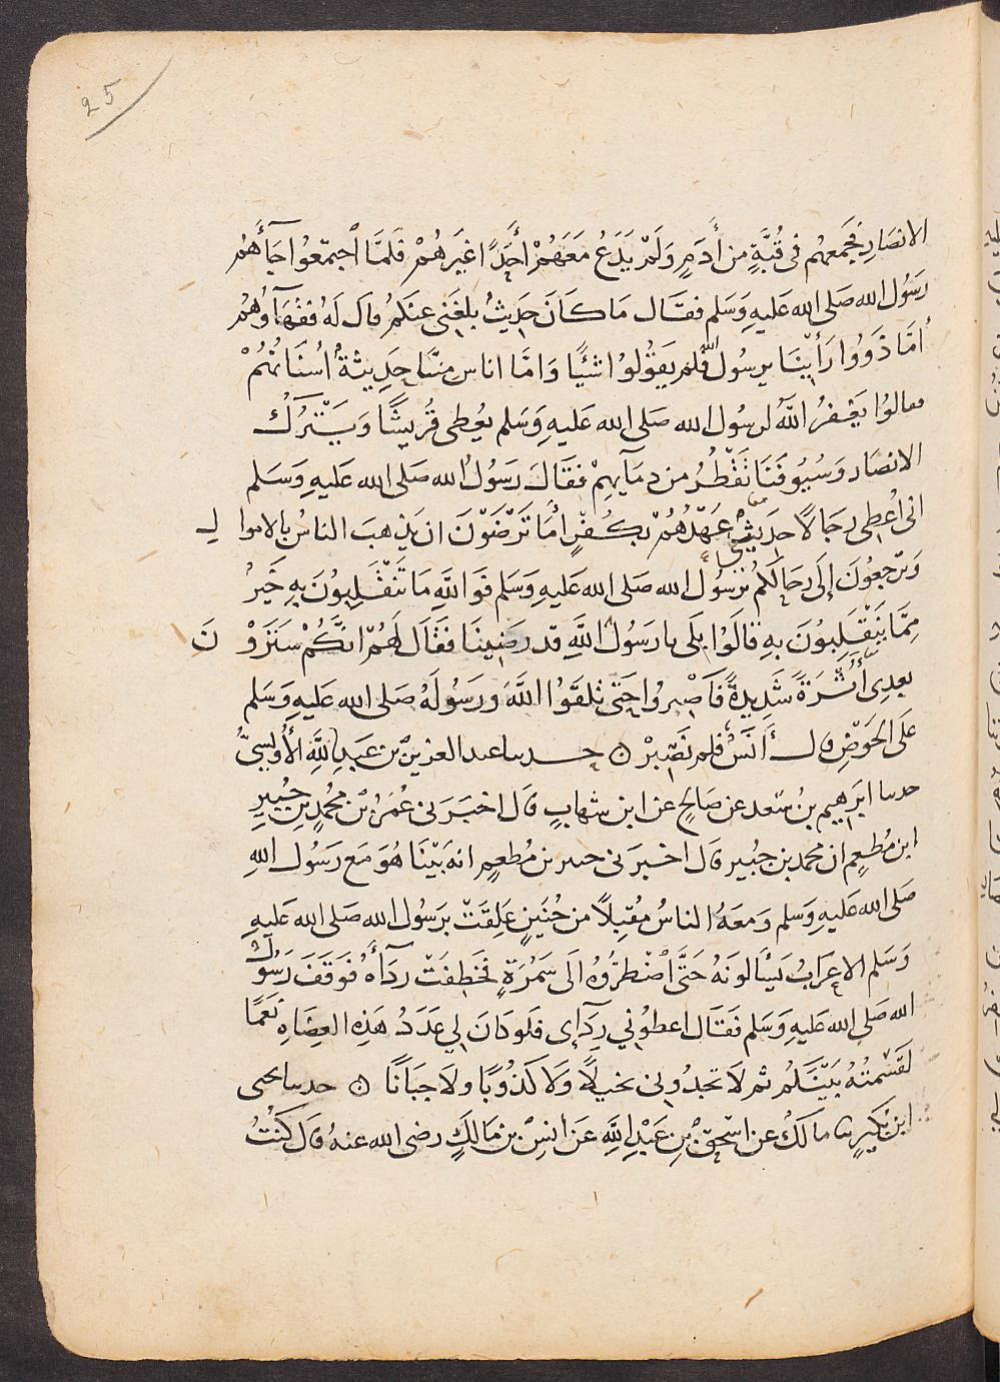 25
الانصَارِ فجَمعهُم فى قُبَّةٍ من أَدَمٍ وَلَمْ يَدَعُ مَعَهُمْ أَحَدًا غَيرَهُمْ فَلمَّا ٱجتمعُوا جَآءَهُم
رَسُول الله صَلى الله عَليهِ وَسَلم فقَال مَا كَانَ حَدِيثٌ بلغَنى عنكمُ قال لَهُ فقهَآؤُهُم
أَمَّا ذَوُوا رَأيِنَا يرسُول الله فلم يَقوُلوُا شئًيا وَامَّا اناس مِنَّا حَدِيثةٌ اُسنَانُهُمْ
فقالوُا يَغْفرُ اللَّهُ لرسُول الله صَلى الله عَليهِ وَسَلم يُعطى قُريشًا وَيَتْرُكُ
الانصَار وَسُيُوفَنَا تَقْطُرُ من دمَآيهِمْ فقَالَ رَسُولُ الله صَلى الله عَليهِ وَسَلم
انى اُعْطى رجَالاً حدِيثٌ عَهْدُهُمْ بكُفْرٍ أَمَا تَرْضَوْنَ ان يذهبَ الناسُ بالاموا لِ
وَترجعُونَ إلَى رحَالكمُ برسُول الله صَلى الله عَليهِ وَسَلم فَوَاللَّهِ مَا تَنْقَلِبوُنَ بهِ خَيرٌ
مِمَّا يَنْقَلِبوُنَ بهِ قَالوُا بَلَى يا رَسُولَ اللَّهِ قد رَضِينَا فقَال لَهُمْ انكُمْ سَتَرَوْ نَ
بعدِى أُثْرَةً شَدِيدةً فَاصْبروُا حَتَّى تلقَوُا اللَّهَ وَرَسُولَهُ صَلى الله عَليهِ وَسَلم
عَلَى الحَوْضِ قال أَنَسٌ فلم نَصْبِرْ ۞ حدثنا عبد العزيز بْن عَبدِ اللَّهِ الأُوَيسىُّ
حدثنا ابرَهِيم بنُ سَعد عن صَالحٍ عن ابن شهابٍ قَال اخبَرنى عُمَرُ بْن مُحمَّدِ بنِ جُبَيرِ
ابن مُطعِمٍ ان محمد بن جُبَير قال اخبرَنى جبير بن مُطعمٍ انهُ بَيْنَا هُوَ مَع رَسُول اللهِ
صَلى الله عَليهِ وَسَلم وَمَعهُ الناسُ مُقبِلاً من حُنَينٍ عَلِقَتْ برَسُول الله صَلى الله عَليهِ
وَسَلم الاعرَابُ يَسْأَلونَهُ حَتَّى اضْطرُّوُهُ الَى سَمُرَةٍ فخَطِفَتْ ردَآءَهُ فوَقَفَ رَسُولُ
الله صَلى الله عَليهِ وَسَلم فقَال اعطوُنِي رِدَآءى فَلو كَانَ لِى عَدَدُ هَذِهِ العِضَاهِ نَعَمًا
لقَسَمتُهُ بَيْنَكُم ثم لاَ تجدُونِى بخيلاً وَلاَ كَذُوبًا ولاَ جبَانًا ۞ حدثنا يحيى
ابن بُكَيرٍ ثنا مالكٌ عن اسْحٰق بْنِ عَبْدِ اللَّهِ عَن أنسِ بْن مَالكٍ رضى الله عنهُ قال كنْتُ